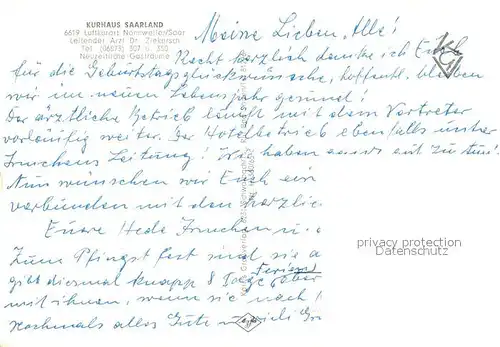 KURHAUS SAARLAND
6619 Luftkurort Nonnweiler/Saar
Leitender Arzt Dr. Ziekursch
Tel. (06873) 307 u. 350
Neuzeitliche Gasträume
Meine Lieben, Alle!
Recht herzlich danke ich Euch
für die Geburtstagsglückwünsche, hoffentl. bleiben
wir im neuen Lebensjahr gesund!
Der ärztliche Betrieb läuft mit dem Vertreter
vorläufig weiter. Der Hotelbetrieb ebenfalls unter
Leitung! Wir haben zu tun!
Nun wünschen wir Euch ein
verbunden mit den herzlie
Euere Hede u.
Zum Pfingstfest sind sie a
gibt diesmal knapp 8 Tage Ferien aber
mit ihnen, wenn sie nach
Nochmals alles Gute u. viele Gr
privacy protection
Datenschutz